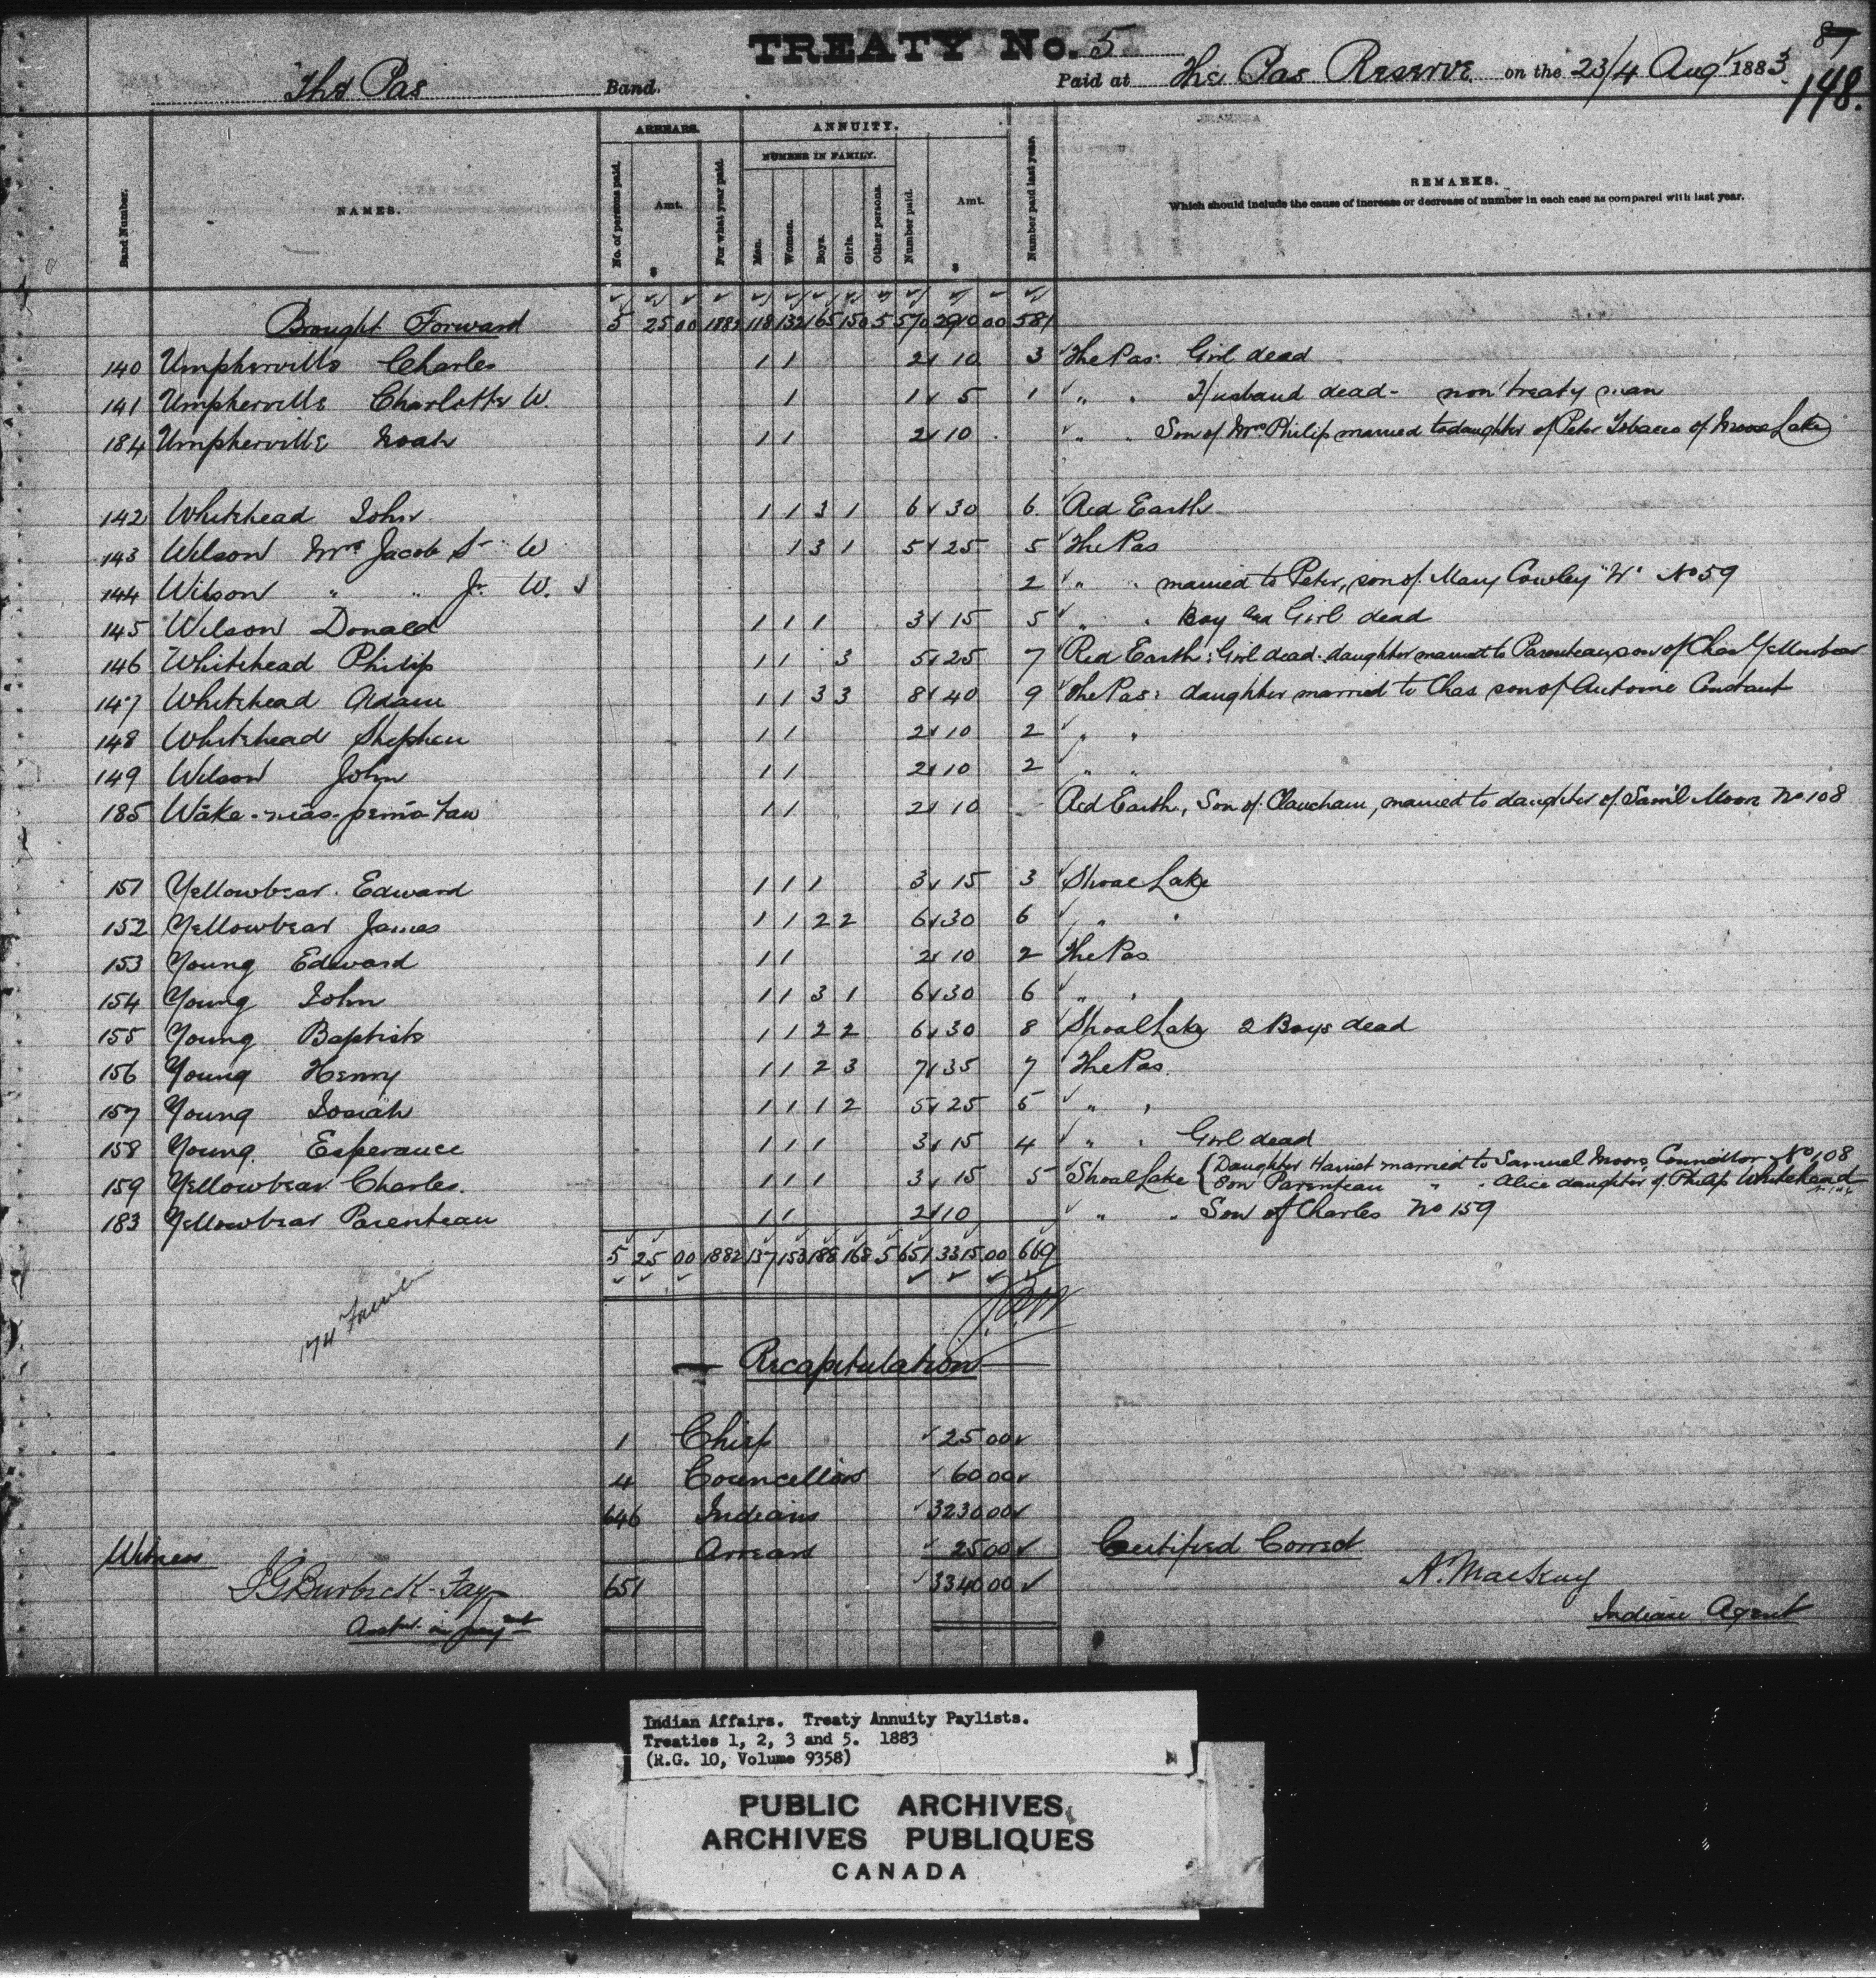 TREATY No. 5
87
148.
The Pas Band. Paid at The Pas Reserve on the 23/4 Augt 1883
ARREARS. ANNUITY.
NUMBER IN FAMILY.
Band Number. NAMES. No. of persons paid. Amt. $ For what year paid. Men. Women. Boys. Girls. Other persons. Number paid. Amt. $ Number paid last year. REMARKS.
Which should include the cause of increase or decrease of number in each case as compared with last year.
Brought Forward 5 25 00 1882 118 132 165 150 5 570 2910 00 581
140 Umpherville Charles 1 1 2 10 3 The Pas: Girl dead
141 Umpherville Charlotte W. 1 1 5 1 " " Husband dead - non treaty man
184 Umpherville Noah 1 1 2 10 " " Son of Mrs Philip married to daughter of Peter Tobacco of Moose Lake
142 Whitehead John 1 1 3 1 6 30 6 Red Earth
143 Wilson Mrs Jacob Sr W 1 3 1 5 25 5 The Pas
144 Wilson " " Jr. W. 2 " " married to Peter, son of Mary Cowley "W" No 59
145 Wilson Donald 1 1 1 3 15 5 " " Boy and Girl dead
146 Whitehead Philip 1 1 3 5 25 7 Red Earth: Girl dead. daughter married to Parenteau, son of Chas Yellowbear
147 Whitehead Adam 1 1 3 3 8 40 9 The Pas: daughter married to Chas son of Antoine Constant
148 Whitehead Stephen 1 1 2 10 2 " "
149 Wilson John 1 1 2 10 2 " "
185 1 1 2 10 Red Earth, Son of married to daughter of Sam'l Moore No 108
151 Yellowbear Edward 1 1 1 3 15 3 Shoal Lake
152 Yellowbear James 1 1 2 2 6 30 6 " "
153 Young Edward 1 1 2 10 2 The Pas
154 Young John 1 1 3 1 6 30 6 " "
155 Young Baptiste 1 1 2 2 6 30 8 Shoal Lake 2 Boys dead
156 Young Henry 1 1 2 3 7 35 7 The Pas
157 Young Josiah 1 1 1 2 5 25 5 " "
158 Young Esperance 1 1 1 3 15 4 " " Girl dead
159 Yellowbear Charles. 1 1 1 3 15 5 Shoal Lake { Daughter Harriet married to Samuel Moore Councillor No 108
Son Parenteau " " Alice daughter of Philip Whitehead
183 Yellowbear Parenteau 1 1 2 10 " " Son of Charles No 159
5 25 00 1882 137 153 188 168 5 651 3315 00 669
174
Recapitulation
1 Chief 25 00
4 Councellors 60 00
646 Indians 3230 00
Arrears 25 00
651 3340 00
Witness
Certified Correct
A. MacKay
Indian Agent
Indian Affairs. Treaty Annuity Paylists.
Treaties 1, 2, 3 and 5. 1883
(R.G. 10, Volume 9358)
PUBLIC ARCHIVES
ARCHIVES PUBLIQUES
CANADA